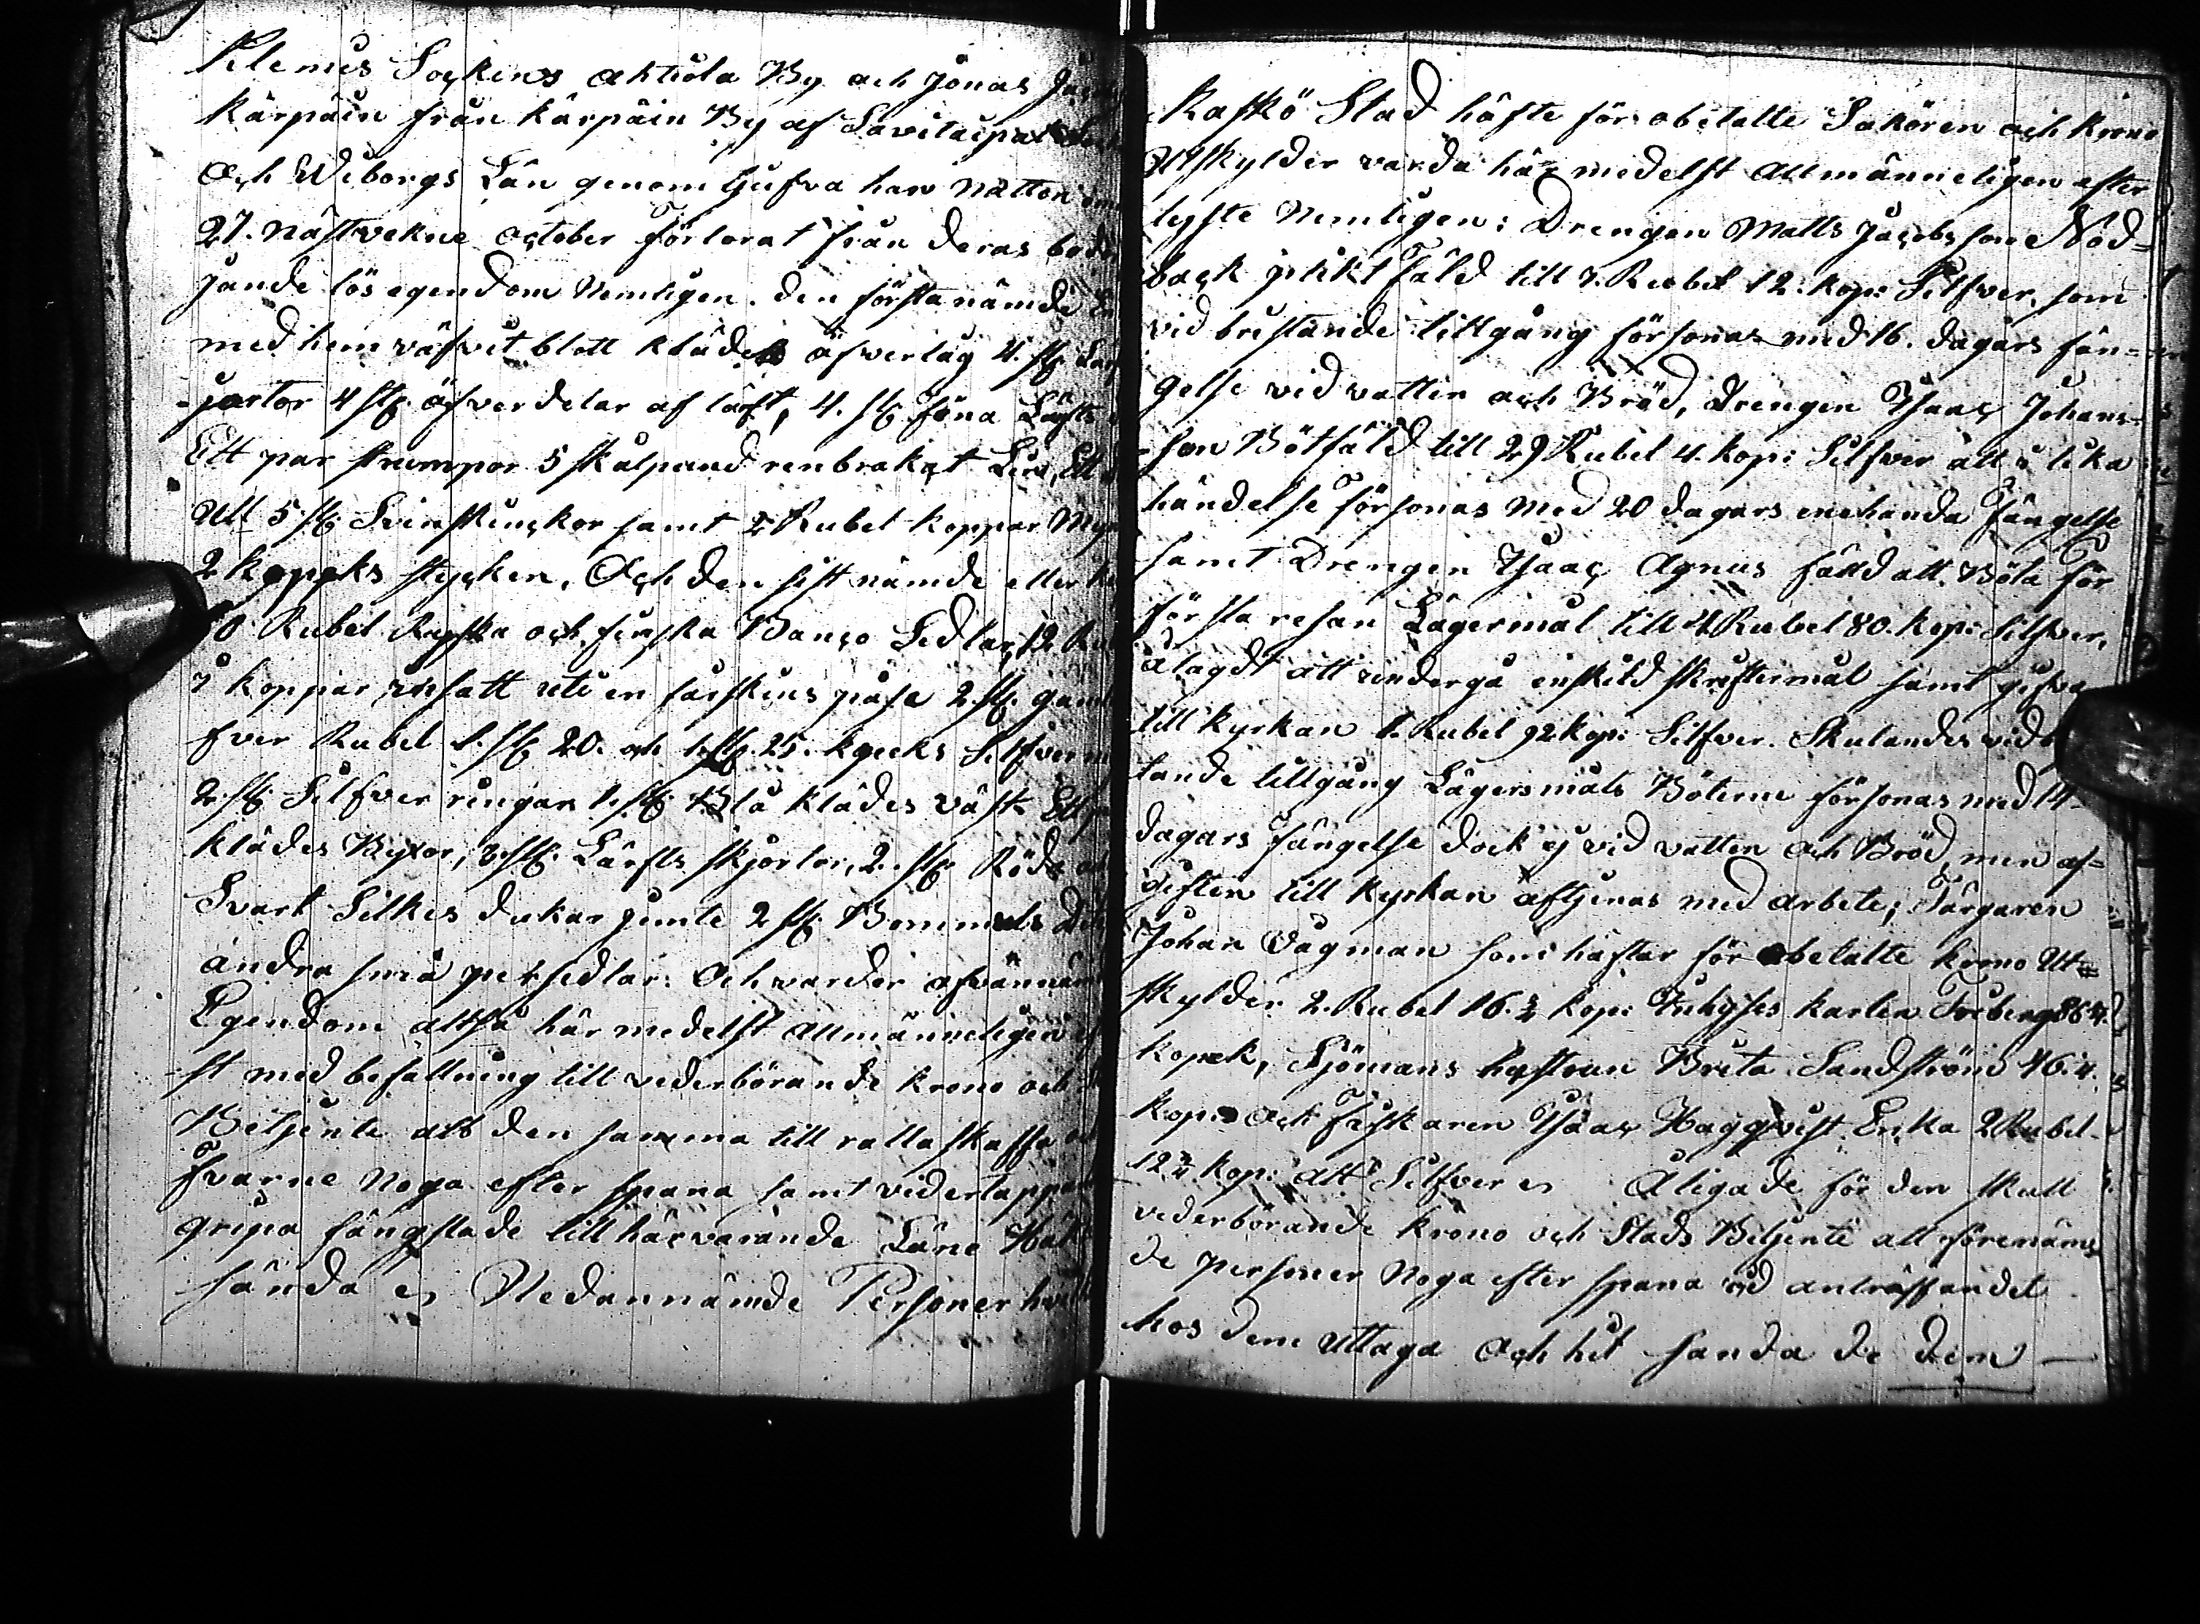 Klemis Sockens Aktiola By och Jonas
Kärpäin från Kärpäin By af Savitaipal
Och Wiborgs Län genom tjufva han natten
27. nästvekne October förlorat från deras
jande lös egendom Nemligen. den förstnämde
med hemväfvit blott klädes öfvertåg 4. st
jortor 4 st. öfverdelar af lärft, 4. st. fina
Ett par strumpor 5 skålpund renbrakat Lin, Ett
Ull 5 st. Svinskinckor samt 2 Rubel koppar
2 kopeks stycken, Och den sist nämde
Rubel Ryska och finska Banco Sedlar, 12
i koppar insatt uti en fårskins påse 2. st.
fver Rubel 1. st 20. och 1. st. 25. kopeks Silfver
2. st. Silfver ringar 1. st. Blå klädes väst Ett
klädes Byxor, 3. st. Lärfts skjortor, 2. st. Röda
Svart Silkes dukar jemte 2 st. Bommuls
andra små persedlar: Och varder ofvannäm
Egendom altså här medelst Allmänneligen
st med befallning till vederbörande krono och
Betjente att den samma till rätta skaffa
fvarne Noga efter spana samt vidertappan
gripa fängslade till härvarande Läns Häkt
sända es Nedannämde Personer
Kaskö Stad häfte för obetalte Sakören och krono
Utskylder varda här medelst Allmänneligen efter
lyste Nemligen: Drengen Matts Jacobsson Nöd-
back pliktfäld till 7. Rubel 12. kop: Silfver, som
vid bristande tillgång försonas med 16. dagars fän-
gelse vid vatten och Bröd, Drengen Isaac Johans-
son Bötfäld till 29 Rubel 4. kop: Silfver att i lika
händelse försonas med 20 dagars enehanda Fängelse
samt Drengen Isaac Agnus fälld att Böta för
första resan Lägermål till 4 Rubel 80. kop: Silfver,
ålagdt att undergå enskild skriftermål samt gifva
till kyrkan 1. Rubel 92 kop: Silfver. Skulandes vid
tande tillgång Lägersmåls Böterne försonas med 14
dagars Fängelse dock ej vid vatten och Bröd, men af-
giften till kyrkan aftjenas med arbete; Färgaren
Johan Vagman som häftar för obetalte krono Ut-
skylder 2. Rubel 16. ½ kop: Inhyses karlen Friberg 86 4.
kopek, Sjömans hustrun Brita Sandström 46. 4.
kop: och Fiskaren Isaac Haggqvist Enka 2 Rubel
12 ¾ kop: allt Silfver es Åligade för den skull
vederbörande krono och Stads Betjente att förenäm
de personer Noga efter spana vid anträffandet
hos dem uttaga och hit sända de dem —